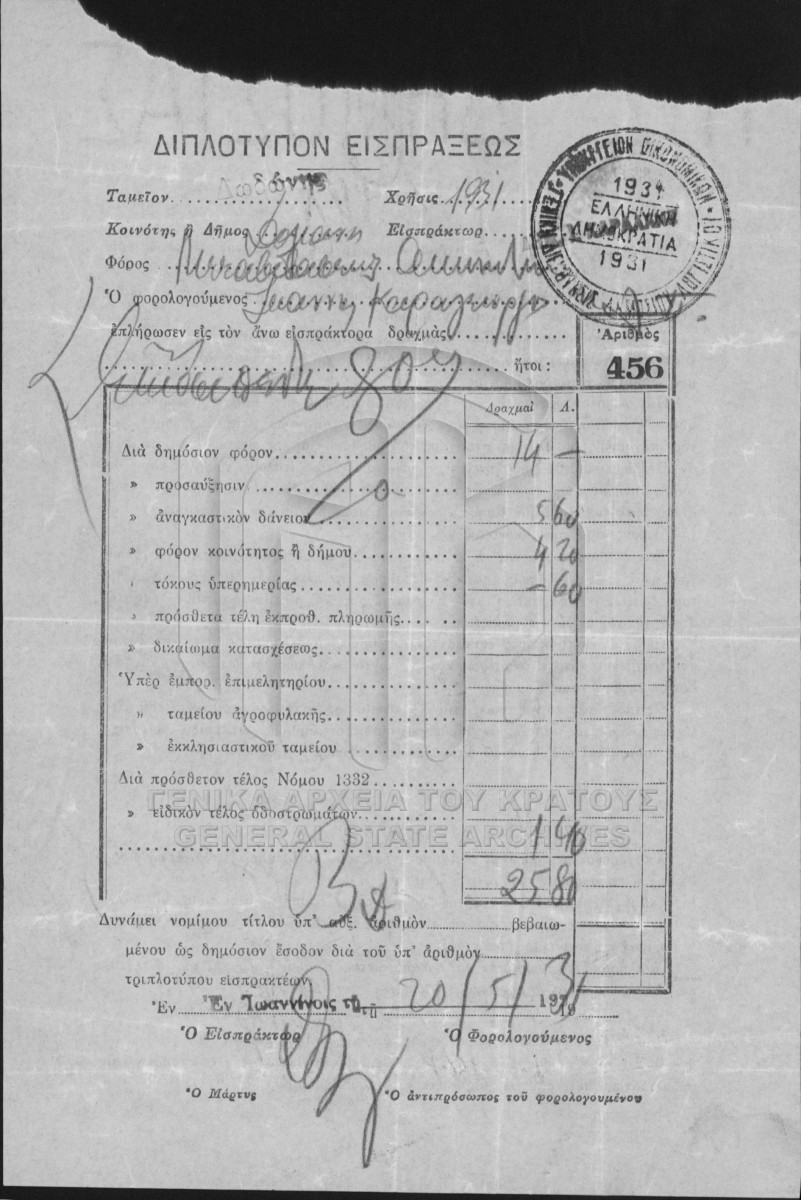 ΔΙΠΛΟΤΥΠΟΝ ΕΙΣΠΡΑΞΕΩΣ
ΥΠΟΥΡΓΕΙΟΝ ΟΙΚΟΝΟΜΙΚΩΝ
1931
ΕΛΛΗΝΙΚΗ
ΔΗΜΟΚΡΑΤΙΑ
1931
Ταμεῖον δώνης Χρῆσις 1931
Κοινότης ἢ Δῆμος Εἰσπράκτωρ
Φόρος
Ὁ φορολογούμενος Ἰωάννη
ἐπλήρωσεν εἰς τὸν ἄνω εἰσπράκτορα δραχμὰς
Ἀριθμὸς
80 ἤτοι:
456
Δραχμαὶ Λ.
Διὰ δημόσιον φόρον 14 —
» προσαύξησιν
» ἀναγκαστικὸν δάνειον 5 60
» φόρον κοινότητος ἢ δήμου 4 20
» τόκους ὑπερημερίας — 60
» πρόσθετα τέλη ἐκπροθ. πληρωμῆς
» δικαίωμα κατασχέσεως
Ὑπὲρ ἐμπορ. ἐπιμελητηρίου
» ταμείου ἀγροφυλακῆς
» ἐκκλησιαστικοῦ ταμείου
Διὰ πρόσθετον τέλος Νόμου 1332
ΓΕΝΙΚΑ ΑΡΧΕΙΑ ΤΟΥ ΚΡΑΤΟΥΣ
» εἰδικὸν τέλος ὁδοστρωμάτων
GENERAL STATE ARCHIVES
1 40
25 80
Δυνάμει νομίμου τίτλου ὑπ' αὐξ. ἀριθμὸν βεβαιω-
μένου ὡς δημόσιον ἔσοδον διὰ τοῦ ὑπ' ἀριθμὸν
τριπλοτύπου εἰσπρακτέων
Ἐν Ἐν Ἰωαννίνοις τῇ τῇ 20/5/31 19
Ὁ Εἰσπράκτωρ Ὁ Φορολογούμενος
Ὁ Μάρτυς Ὁ ἀντιπρόσωπος τοῦ φορολογουμένου